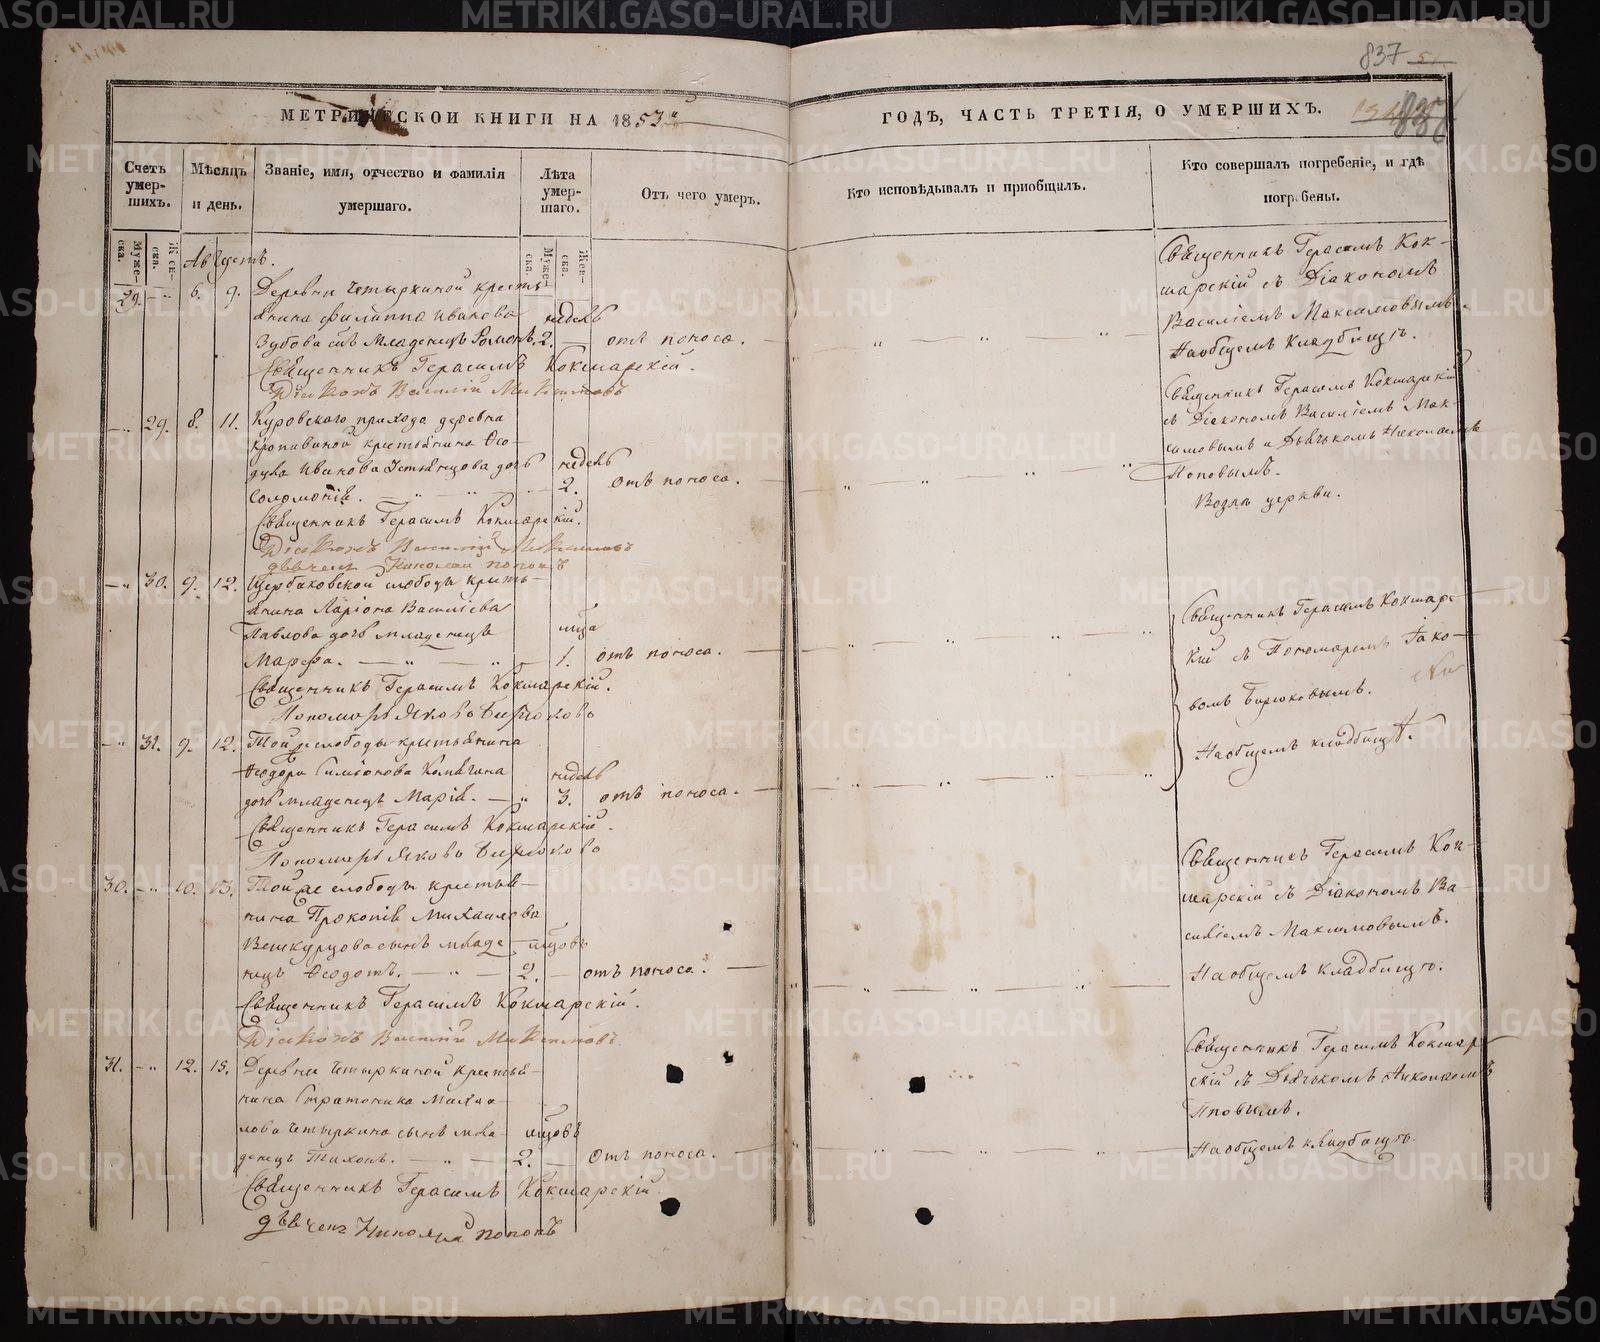 837
МЕТРИЧЕСКОЙ КНИГИ НА 1853й
ГОДЪ, ЧАСТЬ ТРЕТІЯ, О УМЕРШИХЪ.
Счетъ умер-шихъ.
Муже-ска.
Жен-ска.
Мѣсяцъ и день.
Званіе, имя, отчество и фамилія
умершаго.
Лѣта умер-шаго.
Муже-ска.
Жен-ска.
Отъ чего умеръ.
Кто исповѣдывалъ и пріобщалъ.
Кто совершалъ погребеніе, и гдѣ
погребены.
Августъ.
29. — „ 6. 9. Деревни Четыркиной кресть-
янина Филиппа Иванова недѣль
Зубова сынъ младенецъ Романъ. 2. — отъ поноса.
Священникъ Герасимъ Кокшарскій.
Діаконъ Василій Максимовъ
Священникъ Герасимъ Кок-
шарскій съ Діакономъ
Василіемъ Максимовымъ.
На общемъ кладбищѣ.
— „ 29. 8. 11. Куровскаго прихода деревни
Крапивиной крестьянина Ѳео-
дула Иванова Устьянцова дочь недѣль
Соломонія. — „ — „ 2. отъ поноса.
Священникъ Герасимъ Кокшарскій.
Діаконъ Василій Максимовъ
дьячекъ Николай Поповъ
Священникъ Герасимъ Кокшарскій
съ Діакономъ Василіемъ Мак-
симовымъ и Дьячкомъ Николаемъ
Поповымъ.
Возлѣ церкви.
— „ 30. 9. 12. Щербаковской слободы кресть-
янина Ларіона Василіева
Павлова дочь младенецъ мца
Марѳа. — „ — „ — 1. отъ поноса.
Священникъ Герасимъ Кокшарскій.
Пономарь Яковъ Бирюковъ
Священникъ Герасимъ Кокшарс-
кій съ Пономаремъ Іако-
вомъ Бирюковымъ.
На общемъ кладбищѣ.
— „ 31. 9. 12. Той же слободы крестьянина
Ѳеодора Симеонова недѣль
дочь младенецъ Марія. — „ 3. отъ поноса.
Священникъ Герасимъ Кокшарскій.
Пономарь Яковъ Бирюковъ
30. — „ 10. 13. Той же слободы крестья-
нина Прокопія Михайлова
сынъ младе- мцовъ
нецъ Ѳеодотъ. — „ — 2. — отъ поноса.
Священникъ Герасимъ Кокшарскій.
Діаконъ Василій Максимовъ.
Священникъ Герасимъ Кок-
шарскій съ Діакономъ Ва-
силіемъ Максимовымъ.
На общемъ кладбищѣ.
31. — „ 12. 15. Деревни Четыркиной крестья-
нина Стратоника Михай-
лова Четыркина сынъ мла- мцовъ
денецъ Тихонъ. — „ — 2. — Отъ поноса.
Священникъ Герасимъ Кокшарскій.
дьячекъ Николай Поповъ
Священникъ Герасимъ Кокшар-
скій съ Дьячкомъ Николаемъ
Поповымъ.
На общемъ кладбищѣ.
METRIKI.GASO-URAL.RU